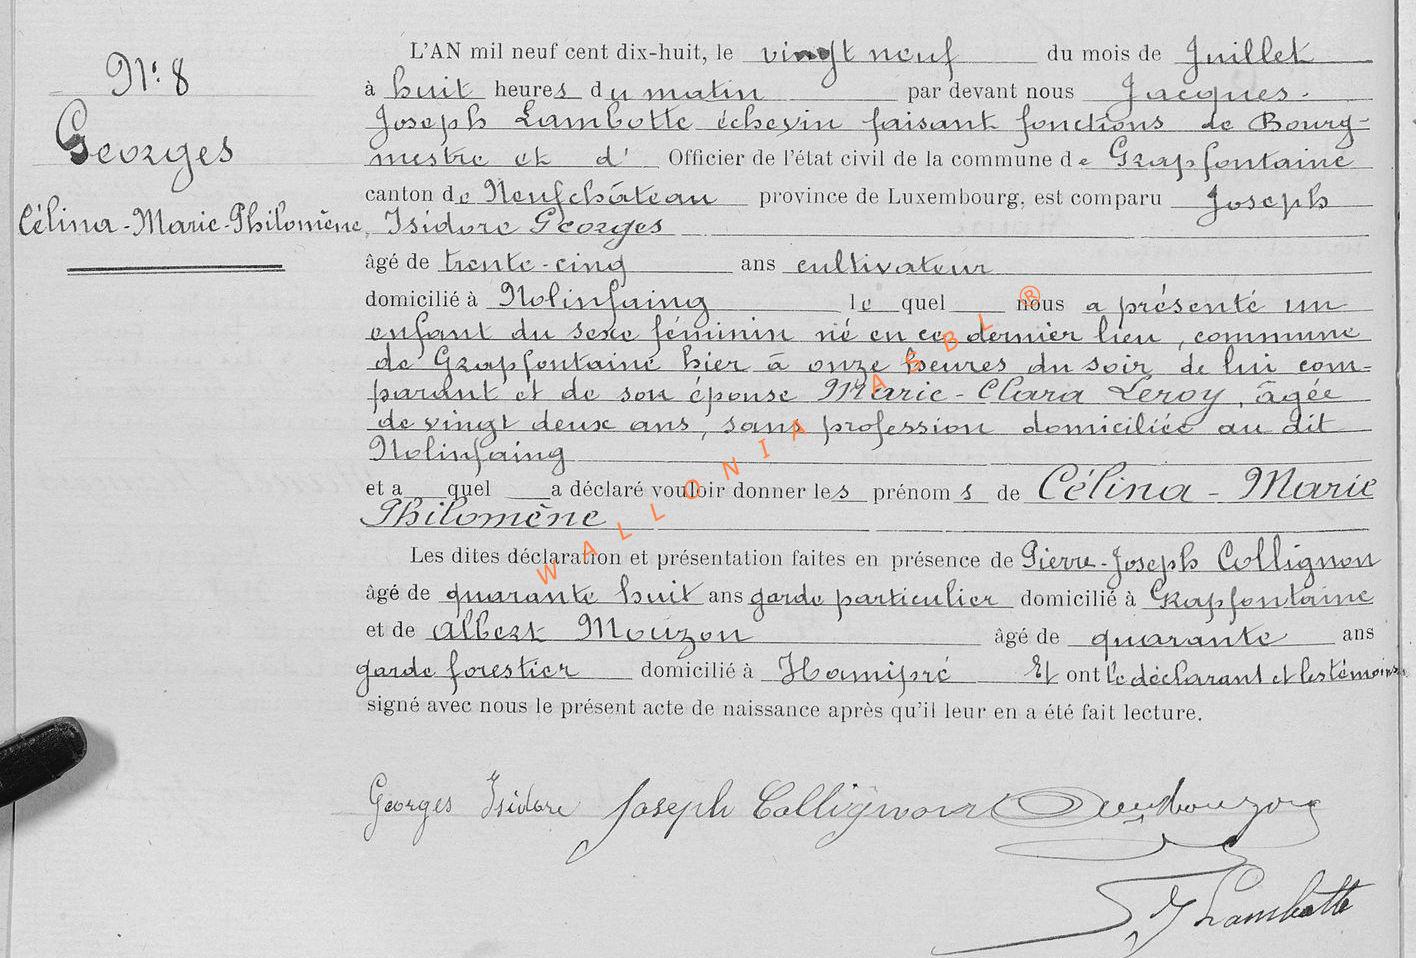 N°: 8
Georges
Célina-Marie-Philomène
L'AN mil neuf cent dix-huit, le vingt neuf du mois de Juillet
à huit heures du matin par devant nous Jacques-
Joseph Lambotte échevin faisant fonctions de Bourg-
mestre et d' Officier de l'état civil de la commune de Grapfontaine
canton de Neufchâteau province de Luxembourg, est comparu Joseph
Isidore Georges
âgé de trente-cinq ans cultivateur
domicilié à Nolinfaing lequel nous a présenté un
enfant du sexe féminin né en ce dernier lieu, commune
de Grapfontaine hier à onze heures du soir de lui com=
parant et de son épouse Marie-Clara Leroy, âgée
de vingt deux ans, sans profession domiciliée au dit
Nolinfaing
et a quel a déclaré vouloir donner les prénoms de Célina-Marie
Philomène
Les dites déclaration et présentation faites en présence de Pierre-Joseph Collignon
âgé de quarante huit ans garde particulier domicilié à Grapfontaine
et de Albert Mouzon âgé de quarante ans
garde forestier domicilié à Hamipré Et ont le déclarant et les témoins
signé avec nous le présent acte de naissance après qu'il leur en a été fait lecture.
Georges Isidore Joseph Collignon
J J Lambotte
WALLONIA ASBL ®